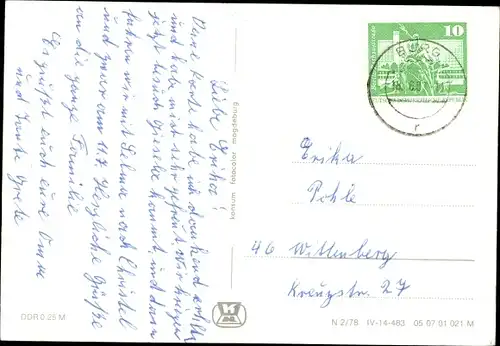 Liebe Erika!
Deine Karte habe ich dankend erhalt
und habe mich sehr gefreut. Wir kriegen
jetzt Besuch Giesela kommt, und dann
fahren wir mit Selma nach Christel
und zwar am 11.7. Herzliche Grüße
an die ganze Familie
Es grüßt euch eure Omi
und Tante Grete
DDR 0.25 M
konsum fotocolor magdeburg
10
BURG
r
Erika
Pohle
46 Wittenberg
Kreuzstr. 27
N 2/78 IV-14-483 05 07 01 021 M